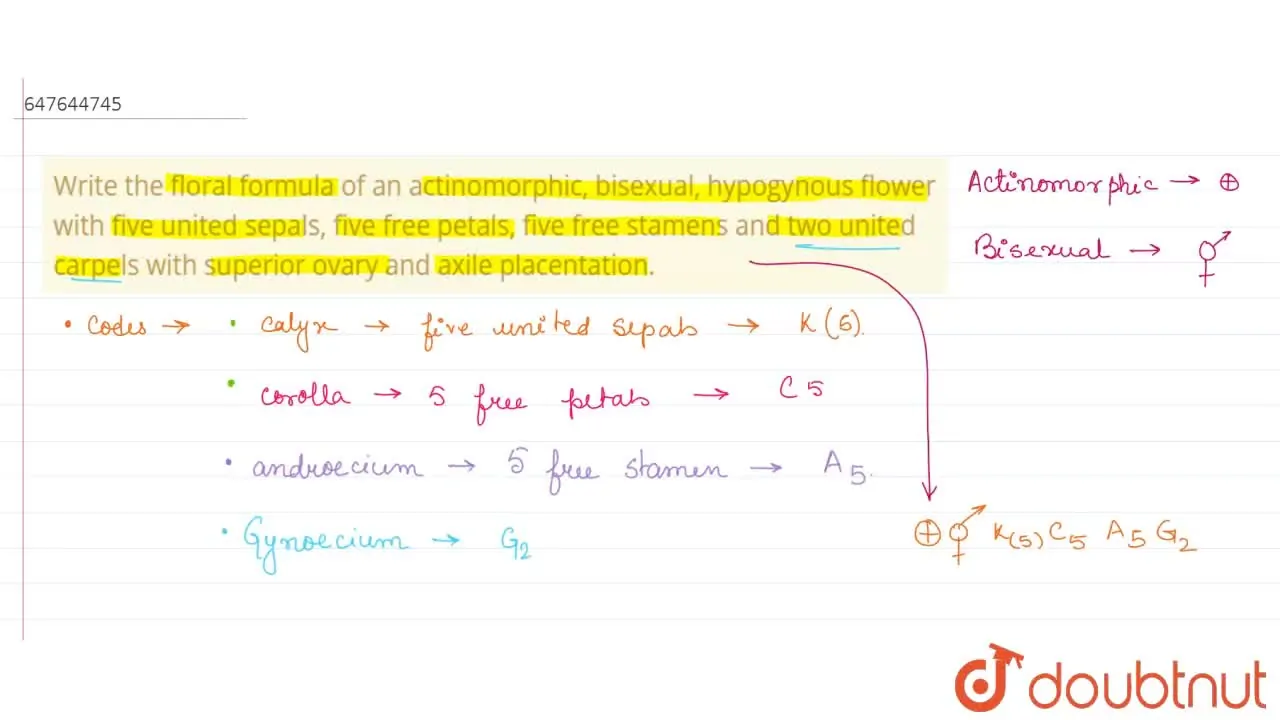 647644745
Write the floral formula of an actinomorphic, bisexual, hypogynous flower
with five united sepals, five free petals, five free stamens and two united
carpels with superior ovary and axile placentation.
Actinomorphic → ⊕
Bisexual → ⚥
• Codes → • Calyx → five united sepals → K(5).
• Corolla → 5 free petals → C5
• androecium → 5 free stamen → A5.
• Gynoecium → G2
⊕ ⚥ K(5) C5 A5 G2
doubtnut